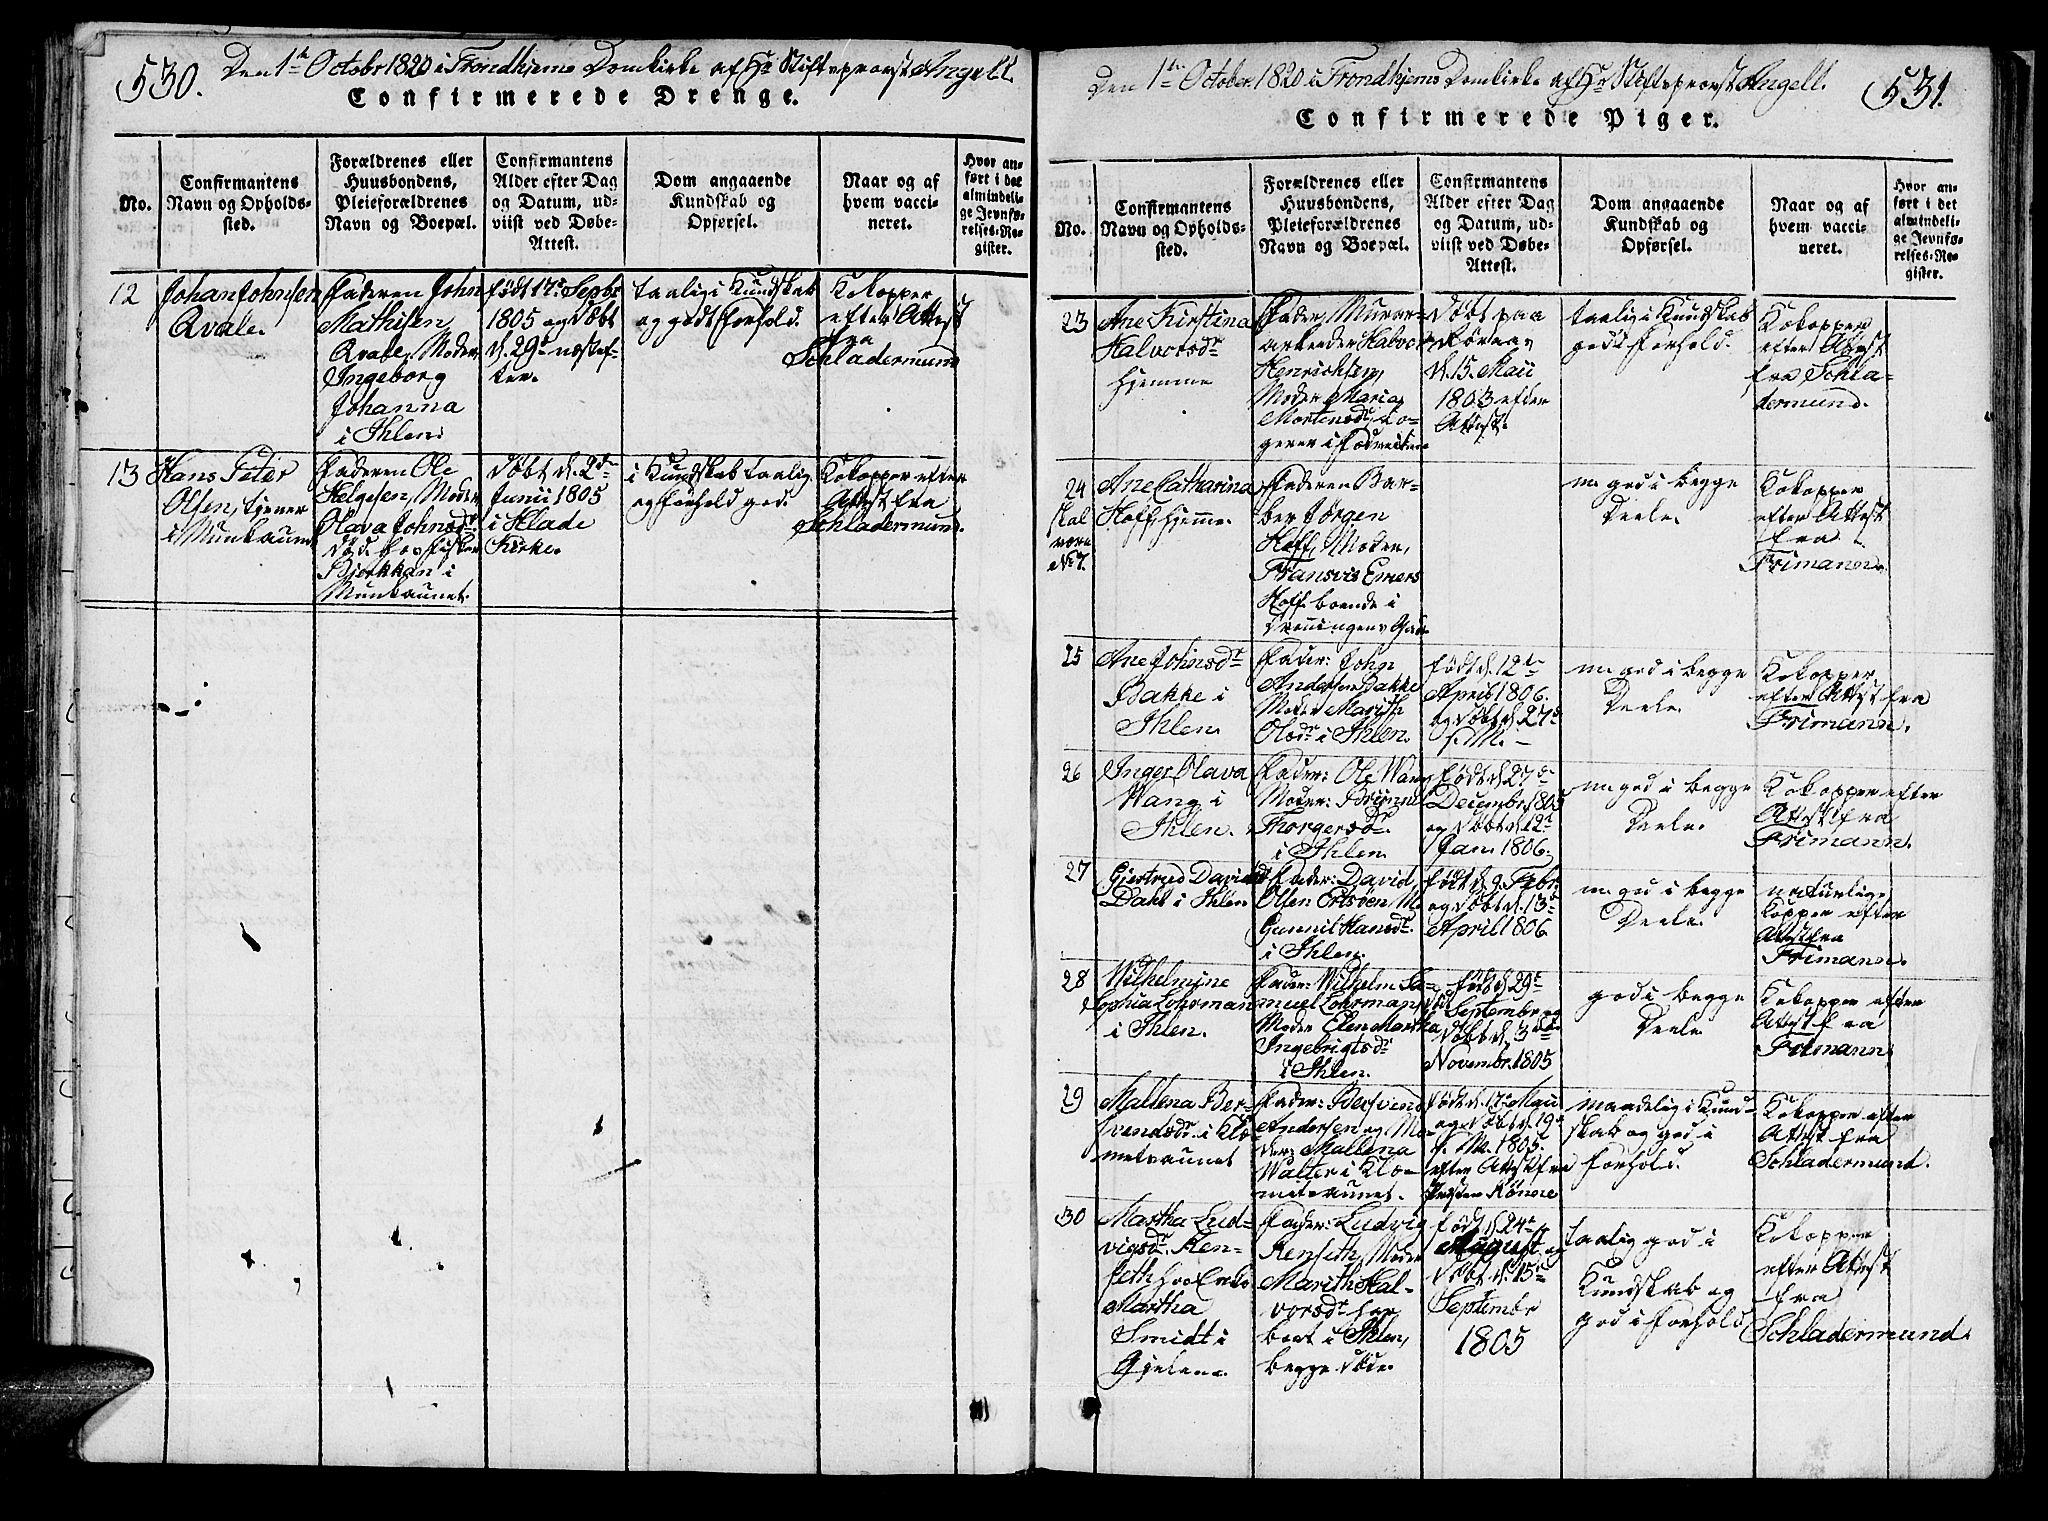 530. Den 1te Octobr 1820 i Trondhjems Domkirke af Hr Stiftsprovst Angell.
Confirmerede Drenge.
No.
Confirmantens
Navn og Opholds-
sted.
Forældrenes eller
Huusbondens,
Pleieforældrenes
Navn og Boepæl.
Confirmantens
Alder efter Dag
og Datum, ud-
viist ved Døbe-
Attest.
Dom angaaende
Kundskab og
Opførsel.
Naar og af
hvem vacci-
neret.
Hvor an-
ført i det
almindeli-
ge Jevnfø-
relses-Re-
gister.
12
Johan Johnsen
Qvale.
Faderen John
Mathisen
Qvale, Moder
Ingeborg
Johanna
i Ihlen.
født 17de Septbr
1805 og døbt
d. 29de næstef-
ter.
taalig i Kundskab
og godt Forhold.
Kokopper
efter Attest
fra
Schladermund
13
Hans Peter
Olsen, tjener
i Munkaune
Faderen Ole
Helgesen, Moder
Olava Johnsdr
død. hos Fisker
Bjerkkan i
Munkaunet.
døbt d. 2den
Junii 1805
i Hlade
Kirke.
i Kundskab taalig
og Forhold god.
Kokopper efter
Attest fra
Schladermund.
Den 1te October 1820 i Trondhjems Domkirke af Hr Stiftsprovst Angell. 531.
Confirmerede Piger.
No.
Confirmantens
Navn og Opholds-
sted.
Forældrenes eller
Huusbondens,
Pleieforældrenes
Navn og Boepæl.
Confirmantens
Alder efter Dag
og Datum, ud-
viist ved Døbe-
Attest.
Dom angaaende
Kundskab og
Opførsel.
Naar og af
hvem vacci-
neret.
Hvor an-
ført i det
almindeli-
ge Jevnfø-
relses-Re-
gister.
23
Ane Kirstina
Halvorsdr
Hjemme
Fader, Murar-
arbeider Halvor
Henrichsen,
Moder Maria
Mortensdr, Lo-
gerer i
Døbt paa
Røraas
d. 15. Maii
1803 efter
Attest.
taalig i Kundskab
godt Forhold.
Kokopper
efter Attest
fra Schla-
dermund.
24
skal
være
No 7.
Ane Catharina
Hoff, Hjemme.
Faderen Bar-
ber Jørgen
Hoff, Moder,
Fransvis Emers
Hoff boende i
Dronningens Gade
meget god i begge
Deele.
Kokopper
efter Attest
fra
Frimann.
25
Ane Johnsdr
Bakke i
Ihlen.
Fader: John
Andersen Bakke
Moder Marith
Olsdr i Ihlen.
født d. 12te
April 1806
og døbt d. 27de
s. M. –
meget god i begge
Deele.
Kokopper
efter Attest fra
Frimann.
26
Inger Olava
Wang i
Ihlen.
Fader: Ole Wang
Moder: Brynne
Thorgersdr.
i Ihlen.
født d. 27de
Decembr. 1805
og døbt d. 12te
Jan. 1806.
meget god i begge
Deele.
Kokopper efter
Attest fra
Frimann.
27
Gjertrud Davidsdr
Dahl i Ihlen
Fader: David
Olsen Mo
Gunnil Hansdr.
i Ihlen.
født d. 9. Febr.
og døbt d. 13de
April 1806.
meget god i begge
Deele.
naturlige
Kopper efter
Attest fra
Frimann.
28
Wilhelmine
Sophia Lohrman
i Ihlen.
Fader: Wilhelm Sa-
muel Lohrman,
Moder Elen Martha
Ingebrigtsdr
i Ihlen.
født d. 29de
Septembr og
døbt d. 3die
Novembr. 1805
god i begge
Deele
Kokopper efter
Attest fra
Frimann.
29
Mallena Ber-
svendsdr. i Klo-
metsaunet
Fader: Bersvend
Andersen og Mo-
der: Mallena
Walter i Klo-
metsaunet.
født d. 17de Maii
og døbt d. 19de
s. M. 1805.
efter Attest fra
Præsten Rönne
maadelig i Kund-
skab og god i
Forhold.
Kokopper efter
Attest fra
Schladermund.
30
Martha Lud-
vigsdr. Ren-
seth hos Enke
Martha
Smidt i
Gjelene.
Fader: Ludvig
Renseth, Moder
Marith Hal-
vorsdr har
boet i Ihlen,
begge døde.
født d. 24de
August og
døbt d. 15de
Septembr
1805
taalig god i
Kundskab og
god i Forhold
Kokopper
efter Attest
fra
Schladermund.